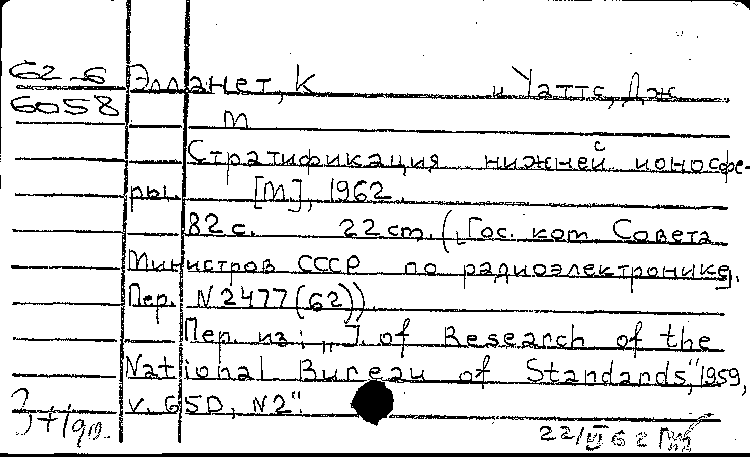 62-6 Элланет, К и Уаттс, Дж
6058 М
Стратификация нижней ионосфе-
ры. [М.], 1962.
82 с. 22 cm. („Гос. ком Совета
Министров СССР по радиоэлектронике.
Пер. N2477(62)).
Пер. из: „J. of Research of the
National Bureau of Standards," 1959,
v. 65D, N2".
22/VI 62